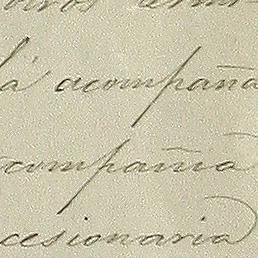 la acompaña
compañia
cesionaria